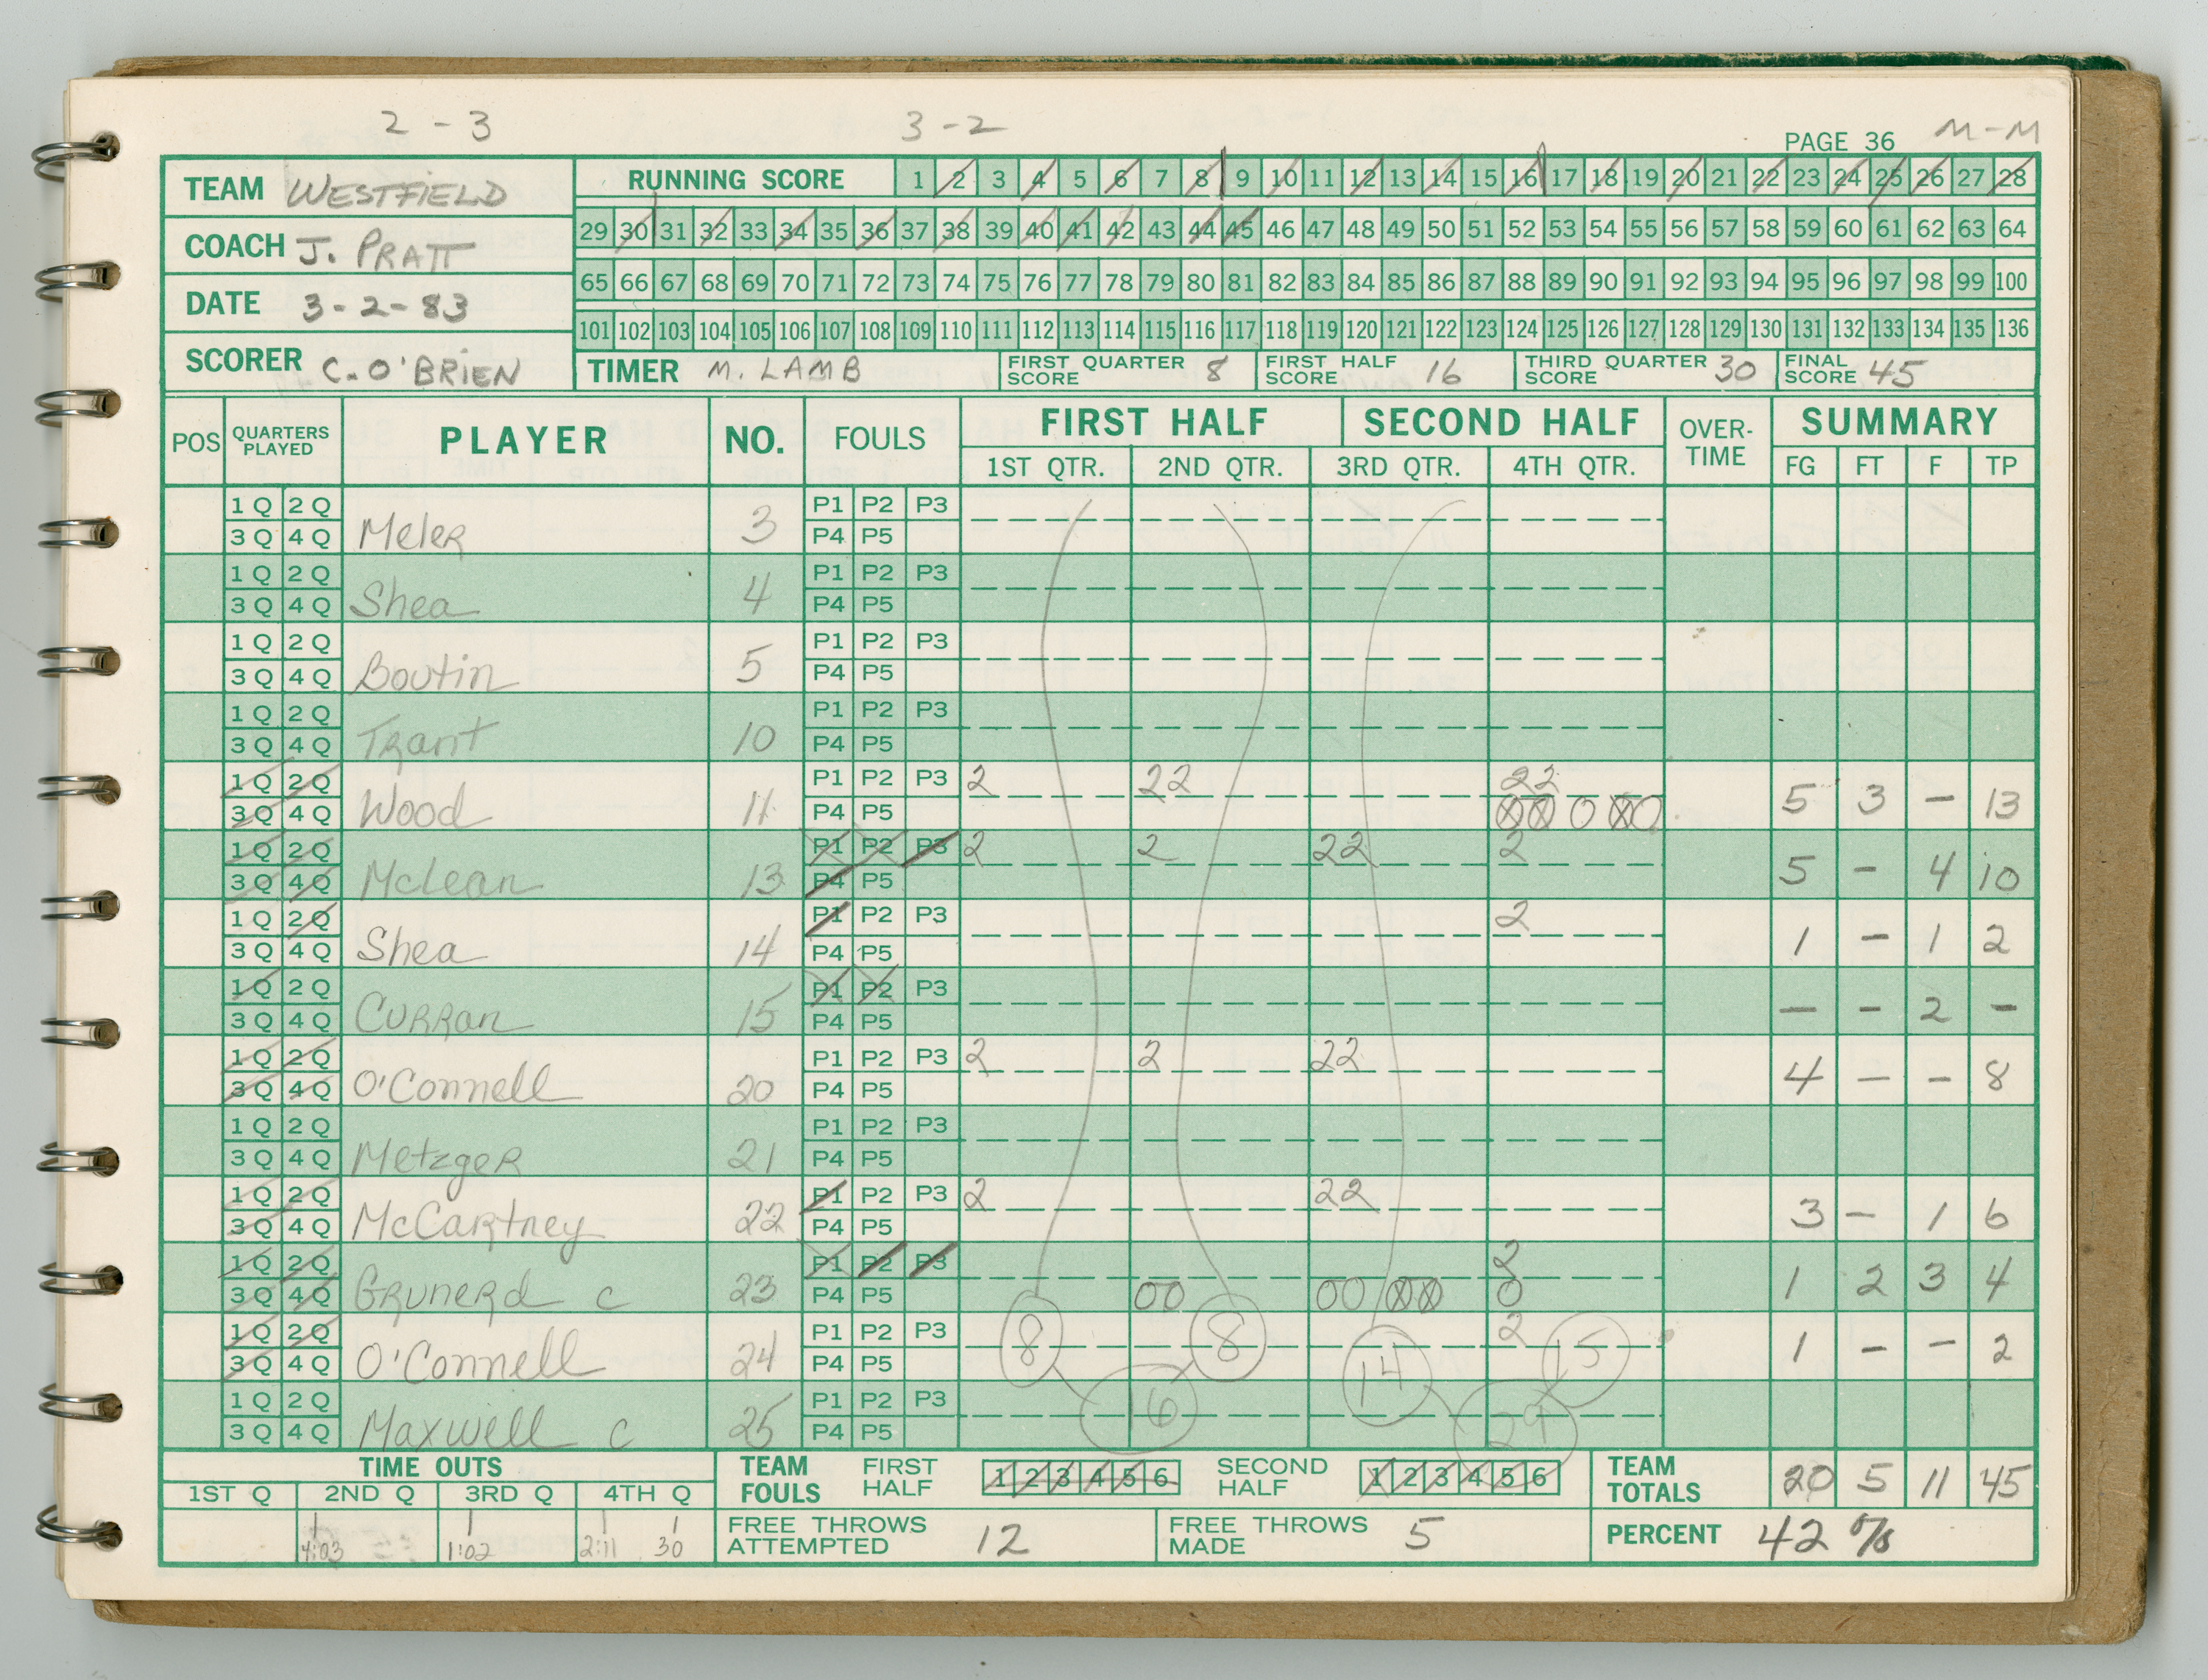 2 - 3 3 - 2 M-M
PAGE 36
TEAM WESTFIELD
COACH J. PRATT
DATE 3-2-83
SCORER C. O'BRIEN
RUNNING SCORE 1 2 3 4 5 6 7 8 9 10 11 12 13 14 15 16 17 18 19 20 21 22 23 24 25 26 27 28
29 30 31 32 33 34 35 36 37 38 39 40 41 42 43 44 45 46 47 48 49 50 51 52 53 54 55 56 57 58 59 60 61 62 63 64
65 66 67 68 69 70 71 72 73 74 75 76 77 78 79 80 81 82 83 84 85 86 87 88 89 90 91 92 93 94 95 96 97 98 99 100
101 102 103 104 105 106 107 108 109 110 111 112 113 114 115 116 117 118 119 120 121 122 123 124 125 126 127 128 129 130 131 132 133 134 135 136
TIMER M. LAMB FIRST QUARTER SCORE 8 FIRST HALF SCORE 16 THIRD QUARTER SCORE 30 FINAL SCORE 45
POS QUARTERS PLAYED PLAYER NO. FOULS FIRST HALF SECOND HALF OVER-TIME SUMMARY
1ST QTR. 2ND QTR. 3RD QTR. 4TH QTR. FG FT F TP
1 Q 2 Q P1 P2 P3
3 Q 4 Q Meler 3 P4 P5
1 Q 2 Q P1 P2 P3
3 Q 4 Q Shea 4 P4 P5
1 Q 2 Q P1 P2 P3
3 Q 4 Q Boutin 5 P4 P5
1 Q 2 Q P1 P2 P3
3 Q 4 Q Trant 10 P4 P5
1 Q 2 Q P1 P2 P3 2 22 22
3 Q 4 Q Wood 11 P4 P5 0 0 0 0 0 5 3 - 13
1 Q 2 Q P1 P2 P3 2 2 22 2
3 Q 4 Q McLean 13 P4 P5 5 - 4 10
1 Q 2 Q P1 P2 P3 2
3 Q 4 Q Shea 14 P4 P5 1 - 1 2
1 Q 2 Q P1 P2 P3
3 Q 4 Q Curran 15 P4 P5 - - 2 -
1 Q 2 Q P1 P2 P3 2 2 22
3 Q 4 Q O'Connell 20 P4 P5 4 - - 8
1 Q 2 Q P1 P2 P3
3 Q 4 Q Metzger 21 P4 P5
1 Q 2 Q P1 P2 P3 2 22
3 Q 4 Q McCartney 22 P4 P5 3 - 1 6
1 Q 2 Q P1 P2 P3 2
3 Q 4 Q Grunerd c 23 P4 P5 00 00 00 0 1 2 3 4
1 Q 2 Q P1 P2 P3 8 8 2 15
3 Q 4 Q O'Connell 24 P4 P5 14 1 - - 2
1 Q 2 Q P1 P2 P3 16 29
3 Q 4 Q Maxwell c 25 P4 P5
TIME OUTS TEAM FOULS FIRST HALF 1 2 3 4 5 6 SECOND HALF 1 2 3 4 5 6 TEAM TOTALS 20 5 11 45
1ST Q 2ND Q 3RD Q 4TH Q
4:03 1:02 2:11 30 FREE THROWS ATTEMPTED 12 FREE THROWS MADE 5 PERCENT 42 %